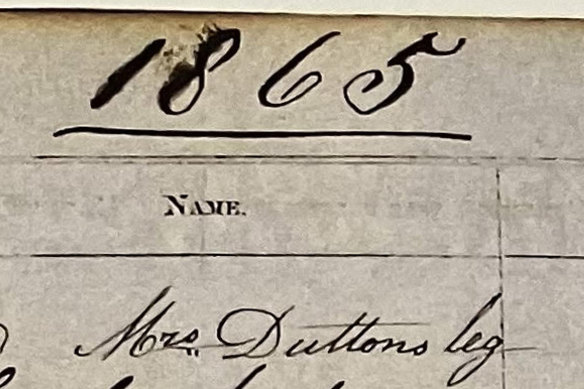 1865
NAME.
Mrs. Duttons leg